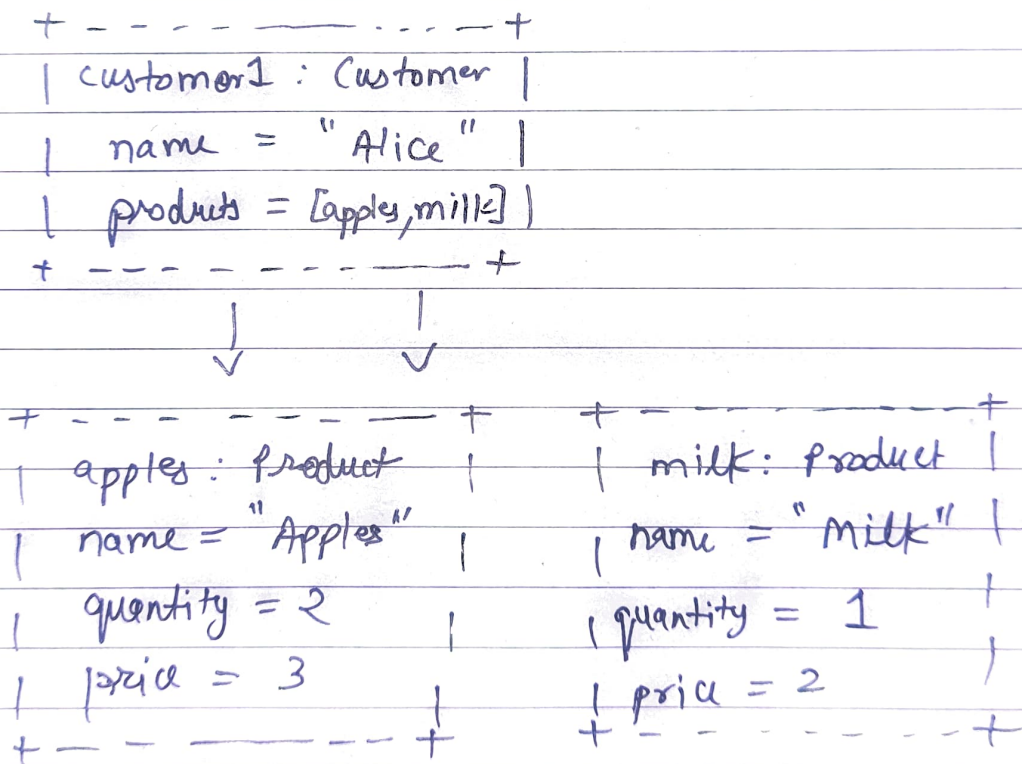 customer1 : Customer
name = "Alice"
products = [apples,milk]
apples : Product
name = "Apples"
quantity = 2
price = 3
milk: Product
name = "Milk"
quantity = 1
price = 2